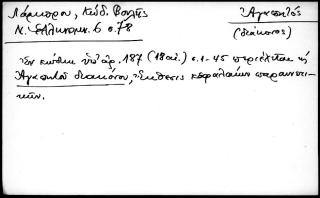 Λάμπρου, Κώδ. Βουλῆς
Ν. Ἑλληνομν. 6 σ. 78
Ἀγαπητός
(διάκονος)
Ἐν κώδικι ὑπ' ἀρ. 187 (18 αἰ.) σ. 1-45 περιέχεται ἡ
Ἀγαπητοῦ διακόνου, Ἔκθεσις κεφαλαίων παραινετι-
κῶν.